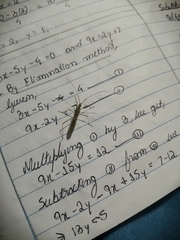 3x-5y-4=0 and 9x=2y+7
By Elimination method,
Given,
3x-5y = 4 - ①
9x-2y = - ②
Multiplying ① by 3, we get,
9x-15y=12 - ③
Subtracting ③ from ② we get
9x-2y-9x+15y=7-12
⇒ 13y=-5